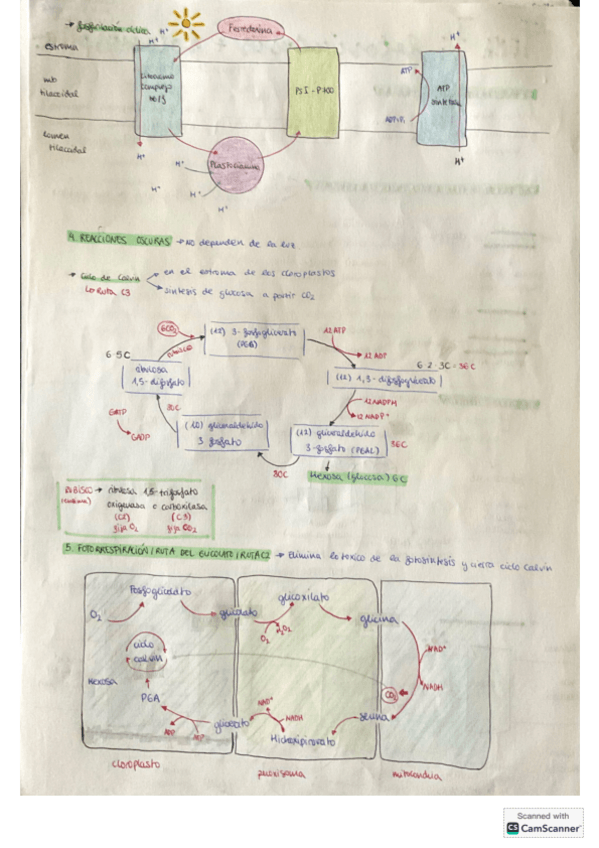 → fosforilación cíclica
H⁺
Ferredoxina
H⁺
estroma
H⁺
mb
tilacoidal
citocromo
complejo
b6/f
PSI-P700
ATP
ADP+Pi
ATP
sintetasa
lumen
tilacoidal
H⁺
H⁺
Plastocianina
H⁺
H⁺
H⁺
H⁺
4. REACCIONES OSCURAS → No dependen de la luz
→ Ciclo de Calvin
en el estroma de los cloroplastos
síntesis de glucosa a partir CO₂
Lo Ruta C3
6CO₂
RUBISCO
(12) 3-fosfoglicerato
(PGA)
12 ATP
12 ADP
6·5C
ribulosa
1,5-difosfato
6·2·3C=36C
(12) 1,3-difosfoglicerato
12 NADPH
12 NADP⁺
6ATP
6ADP
30C
(10) gliceraldehido
3 fosfato
(12) gliceraldehido
3-fosfato (PGAL)
36C
30C
Hexosa (glucosa) 6C
RUBISCO → ribulosa 1,5-trifosfato
(enzima)
oxigenasa o carboxilasa
(C2) (C3)
fija O₂ fija CO₂
5. FOTORRESPIRACIÓN/RUTA DEL GLICOLATO/RUTA C2 → Elimina lo tóxico de la fotosíntesis y cierra ciclo Calvin
Fosfoglicolato
O₂
glicolato
O₂
H₂O₂
glicoxilato
glicina
NAD⁺
NADH
ciclo
calvin
Hexosa
PGA
CO₂
ADP
ATP
glicerato
NAD⁺
NADH
Hidroxipiruvato
serina
cloroplasto
peroxisoma
mitocondria
Scanned with
CS CamScanner